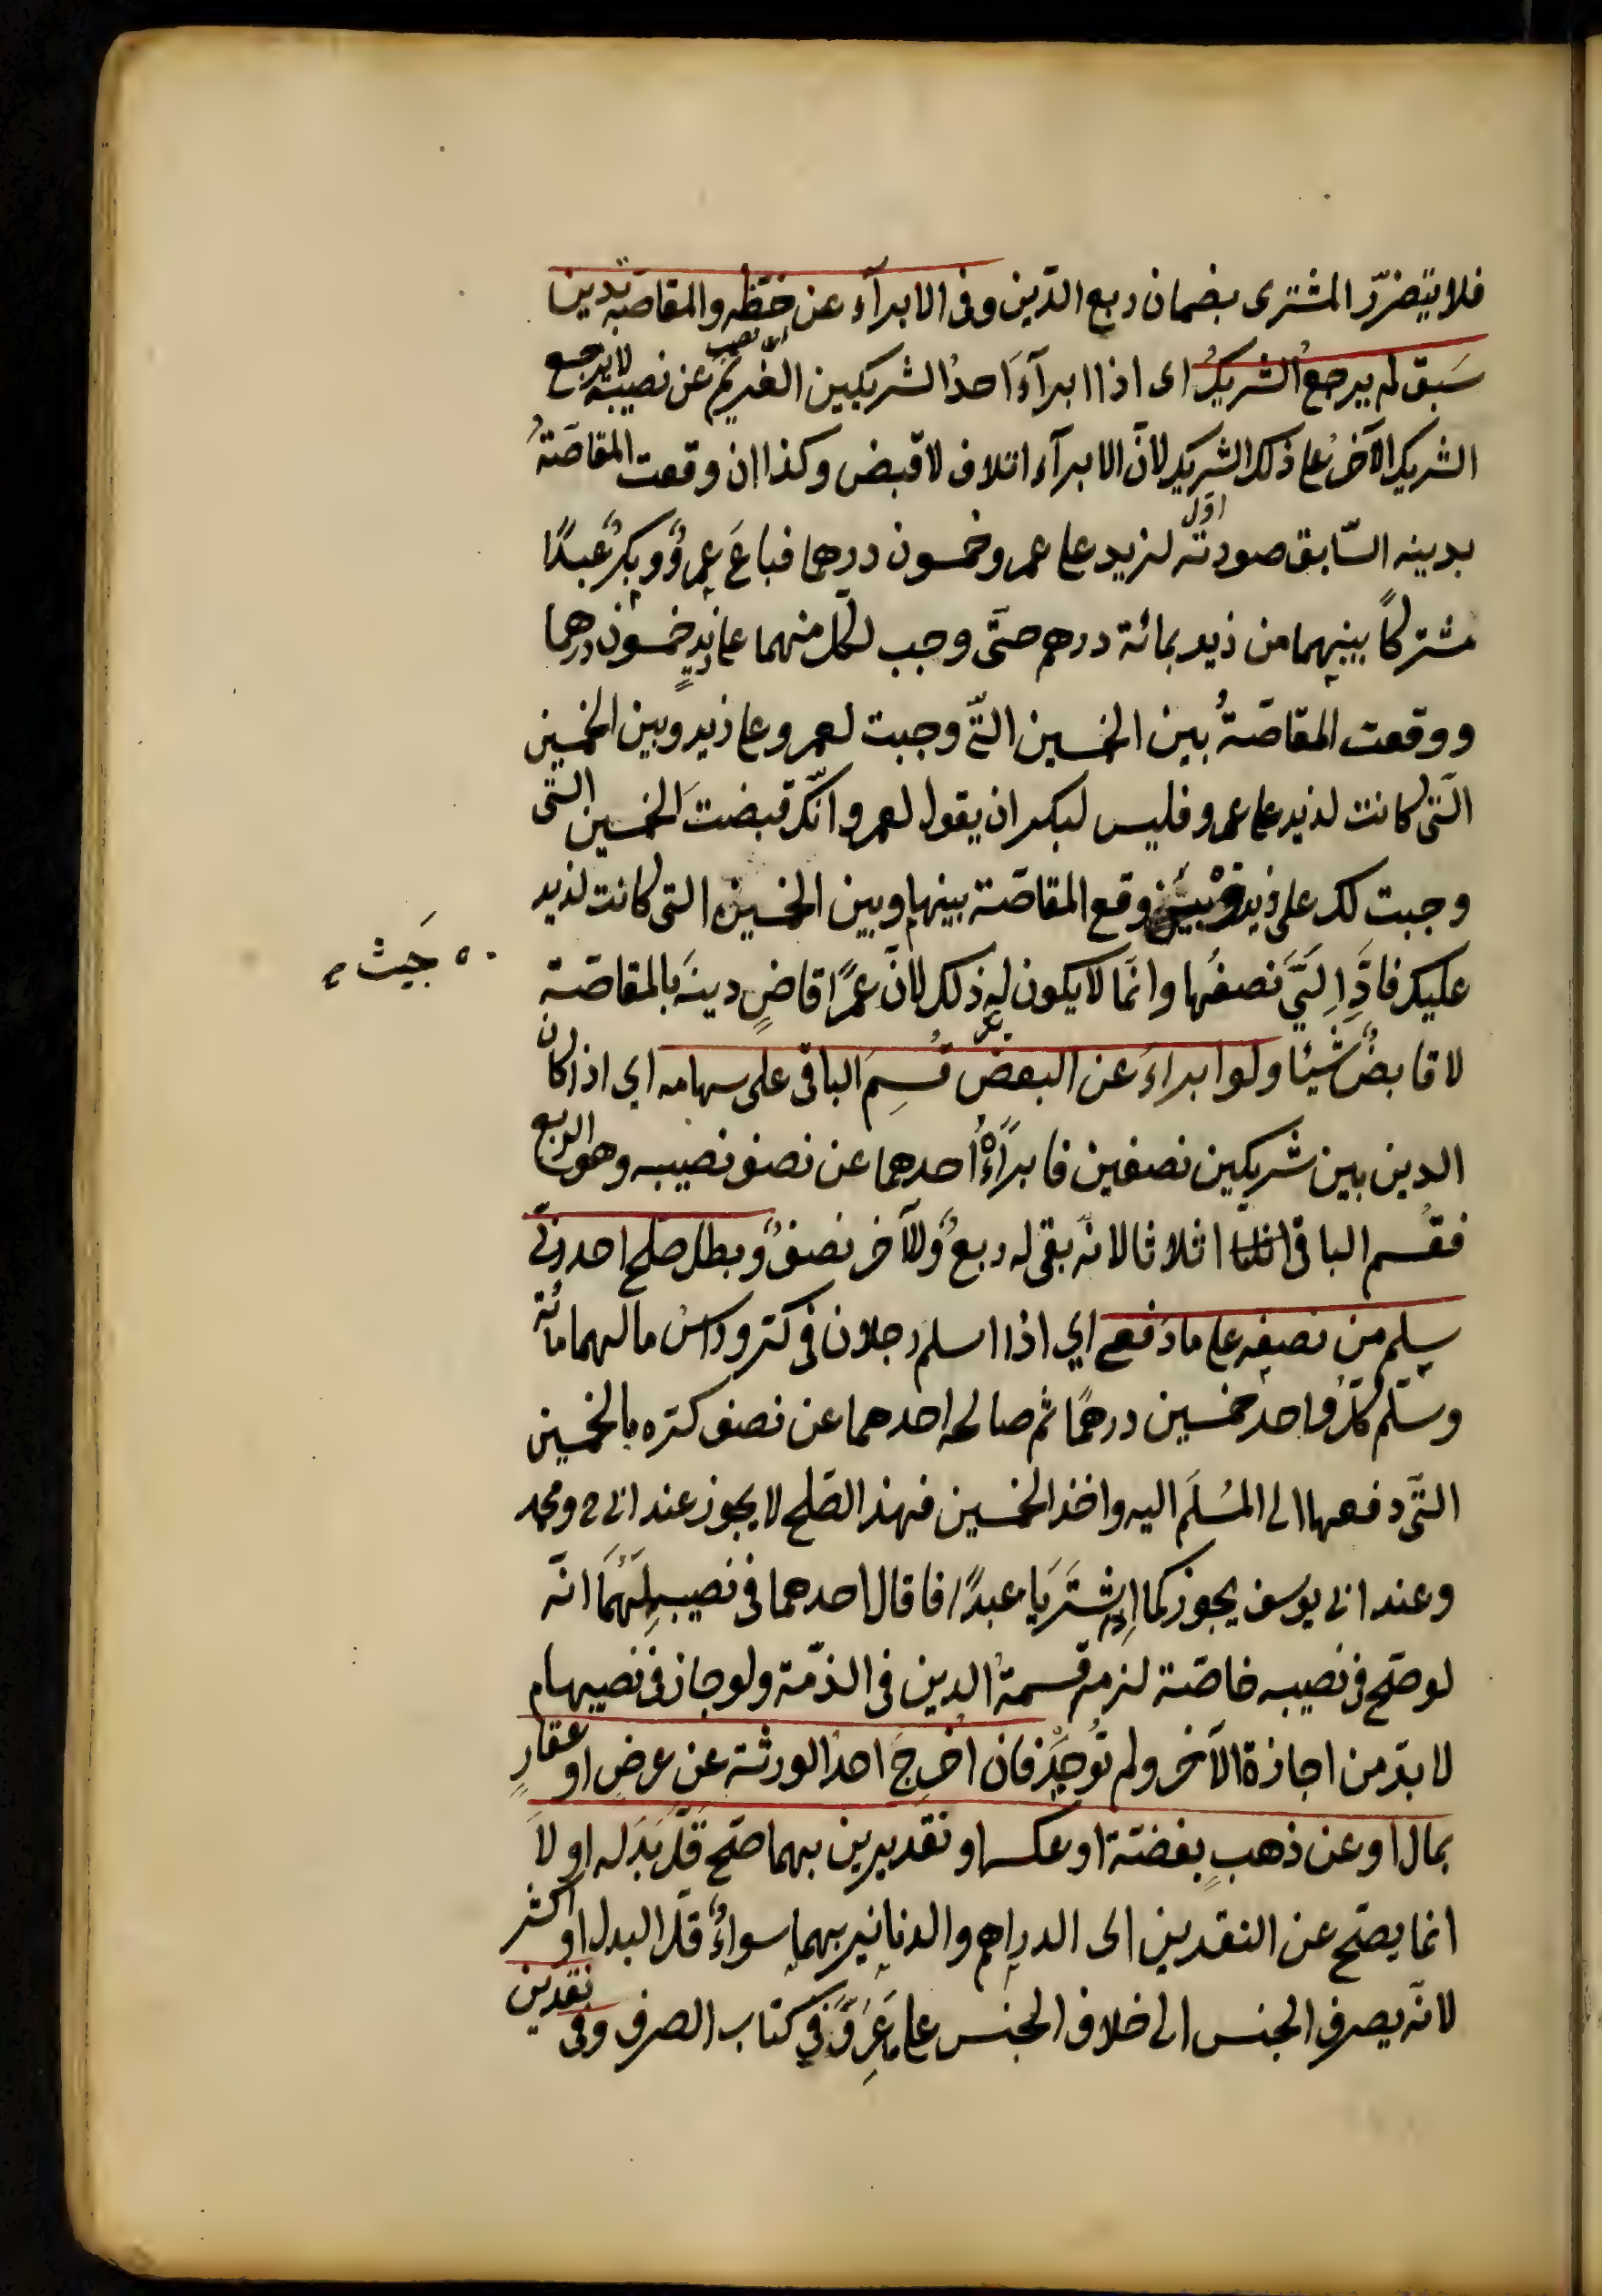 فلا يتضرّر المشترى بضمان ربع الدّين وفى الابرآء عن حظّه والمقاصّة بدين
سَبق لم يرجع الشريكُ اى اذا ابرآءَ احدُ الشريكين الغريمَ عن نصيبه لا يرجع
الشريك الآخرُ على ذلك الشريك لانّ الابرآء اتلاف لا قبض وكذا ان وقعت المقاصّةُ
بدينه السّابق صورته لزيد على عمرو خمسون درهما فباعَ عمروٌ وبكرٌ عبدًا
مشتركًا بينهما من زيد بمائة درهم حتّى وجب لكل منهما على زيدٍ خمسون درهما
ووقعت المقاصّةُ بين الخمسين التّى وجبت لعمرو على زيد وبين الخمسين
التّى كانت لزيد على عمرو فليس لبكر ان يقول لعمرو انّك قبضتَ الخمسين التّى
وجبت لك على زيد وقع المقاصّة بينها وبين الخمسين التى كانت لزيد
عليك فادِّ اِلَيَّ نصفَها وانّما لا يكون له ذلك لانّ عمرًا قاضٍ دينَه بالمقاصّة
لا قابضٌ شيئًا ولو ابراءَ عن البعض قُسِمَ الباقى على سهامه اي اذا كان
الدين بين شريكين نصفين فابرآءَ احدهما عن نصف نصيبه وهو الربع
فقُسم الباقى اثلاثا لانّه بقى له ربعٌ وللآخر نصفٌ وبطل صلح احد ربّى
سلم من نصفه على ما دفع اي اذا اسلم رجلان فى كرّ وراسُ مالهما مائة
وسلّم كلّ واحد خمسين درهمًا ثم صالح احدهما عن نصف كرّه بالخمسين
التّى دفعها الى المُسْلَم اليه واخذ الخمسين فهذا الصّلح لا يجوز عند ابى ح ومحمد
وعند ابى يوسف يجوز كما اِذا اشتَرَيَا عبدًا فاقال احدهما فى نصيبه لَهُمَا انّه
لو صحّ فى نصيبه خاصّة لزم قسمةُ الدين فى الذمّة ولو جاز فى نصيبهما
لا بدّ من اجازة الآخر ولم تُوجَدْ فان اخرجَ احدُ الورثة عن عرض او عقارٍ
بمال او عن ذهبٍ بفضّة او عكسه او نقدين بهما صحّ قلّ بدَله او لاَ
انما يصحّ عن النقدين اى الدراهم والدنانير بهما سواءٌ قلّ البدل او اكثر
لانّه يصرف الجنس الى خلاف الجنس على ما عُرِفَ فى كتاب الصرف وفى نقدين